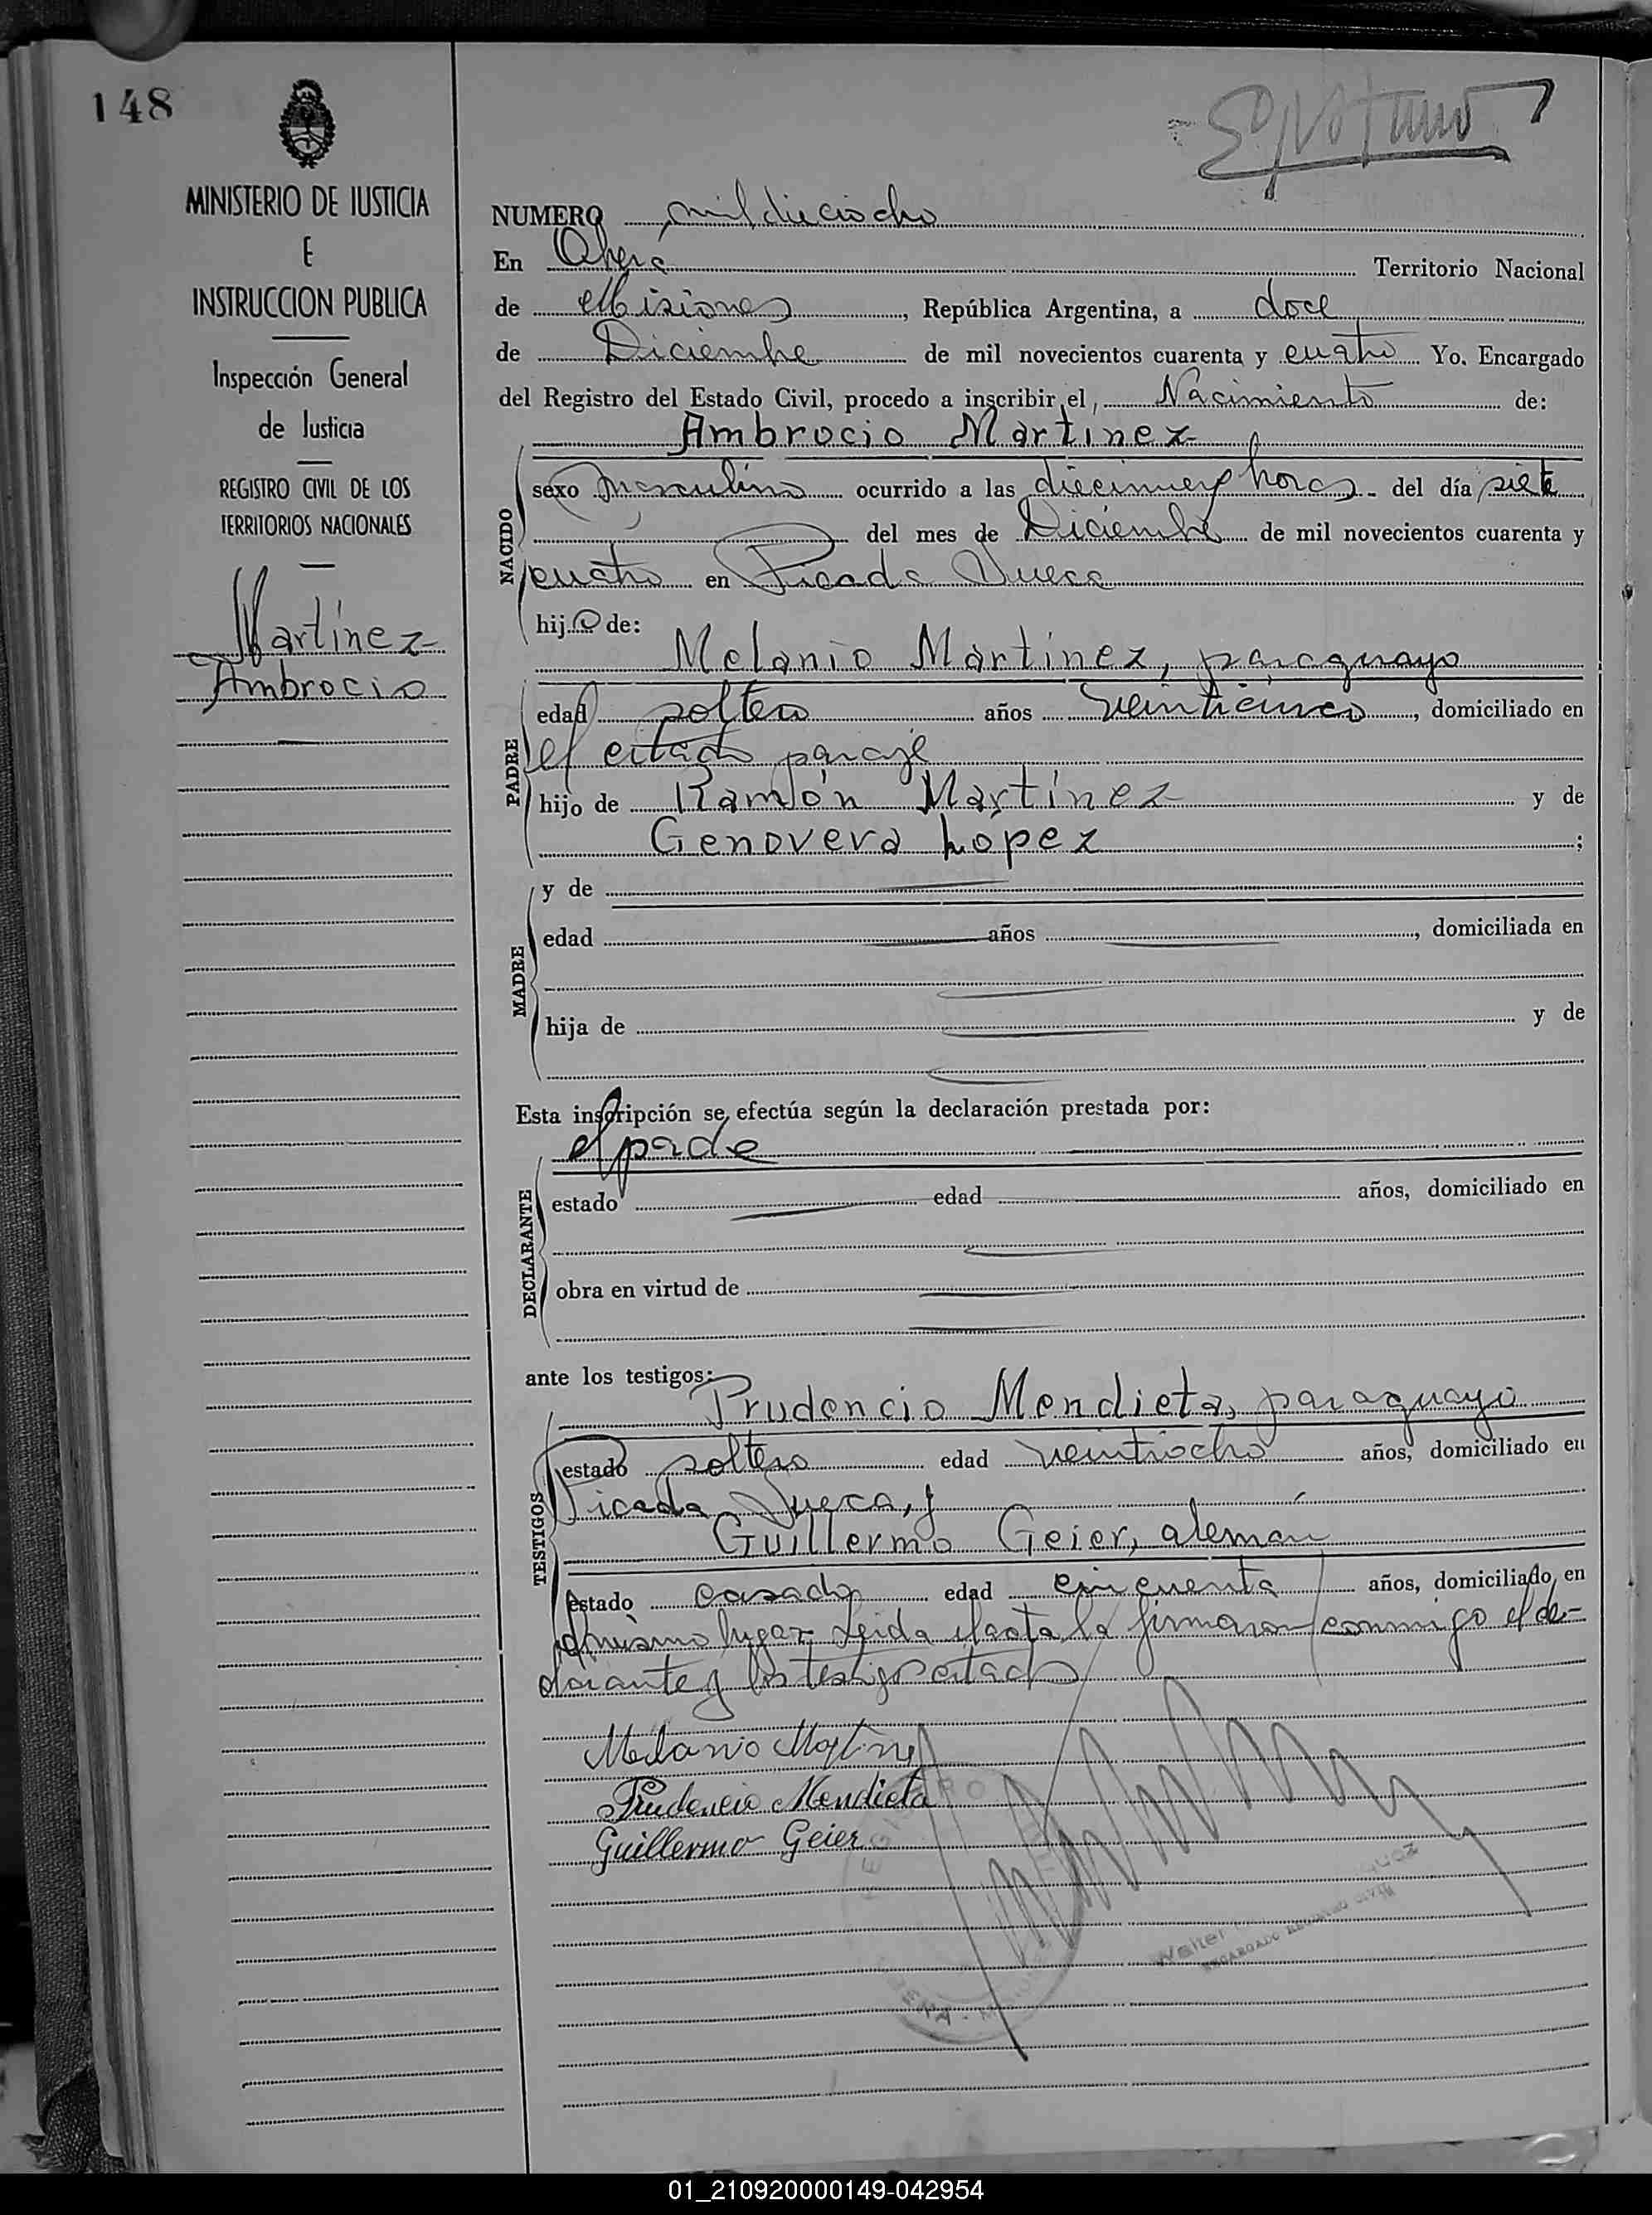 148
MINISTERIO DE JUSTICIA
E
INSTRUCCION PUBLICA
Inspección General
de Justicia
REGISTRO CIVIL DE LOS
TERRITORIOS NACIONALES
Martínez
Ambrocio
NUMERO mil dieciocho
En Oberá Territorio Nacional
de Misiones, República Argentina, a doce
de Diciembre de mil novecientos cuarenta y cuatro Yo, Encargado
del Registro del Estado Civil, procedo a inscribir el, Nacimiento de:
Ambrocio Martinez
NACIDO
sexo masculino ocurrido a las diecinueve horas - del día siete
del mes de Diciembre de mil novecientos cuarenta y
cuatro en Picada Sueca
hijo de:
Melanio Martinez, paraguayo
PADRE
edad soltero años veinticinco, domiciliado en
el citado paraje
hijo de Ramón Martínez y de
Genoveva Lopez;
MADRE
y de
edad años, domiciliada en
hija de y de
Esta inscripción se efectúa según la declaración prestada por:
el padre
DECLARANTE
estado edad años, domiciliado en
obra en virtud de
ante los testigos:
Prudencio Mendieta, paraguayo
TESTIGOS
estado soltero edad veintiocho años, domiciliado en
Picada Sueca, y
Guillermo Geier, alemán
estado casado edad cincuenta años, domiciliado en
el mismo lugar. Leida el acta la firmaron conmigo el de-
clarante y los testigos citados
Melanio Martinez
Prudencio Mendieta
Guillermo Geier
REGISTRO
Walter
ENCARGADO REGISTRO CIVIL
01_210920000149-042954